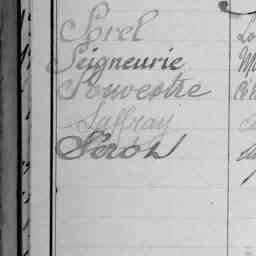 Sorel
Seigneurie
Souvestre
Saffray
Séron